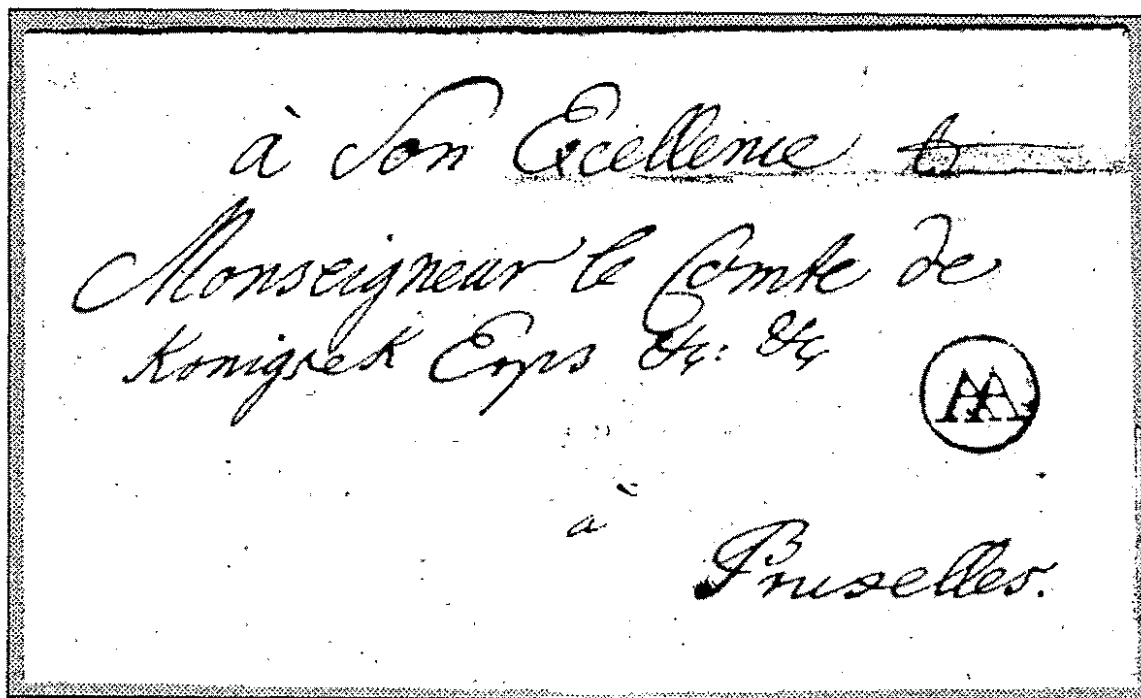 à Son Excellence
Monseigneur le Comte de
Konigsek Erps &c: &c
AA
à
Bruxelles.